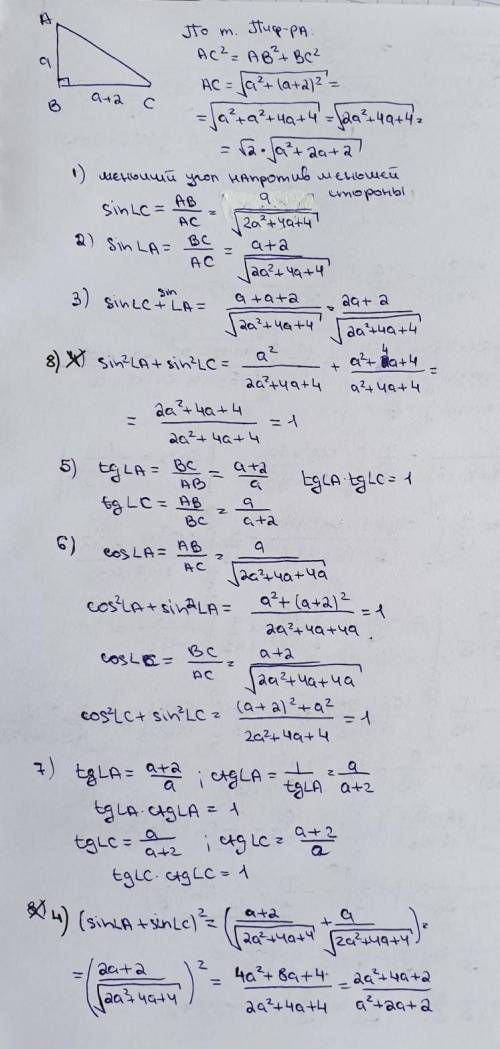 A
a
B
a+2
C
По т. Пиф-ра
AC² = AB² + BC²
AC = √(a² + (a+2)²) =
= √(a² + a² + 4a + 4) = √(2a² + 4a + 4) =
= √2 · √(a² + 2a + 2)
1) меньший угол напротив меньшей стороны
sin∠C = AB/AC = a/√(2a² + 4a + 4)
2) sin∠A = BC/AC = a+2/√(2a² + 4a + 4)
3) sin∠C + sin∠A = a+a+2/√(2a² + 4a + 4) = 2a+2/√(2a² + 4a + 4)
8) sin²∠A + sin²∠C = a²/2a² + 4a + 4 + a² + 4a + 4/a² + 4a + 4 =
= 2a² + 4a + 4/2a² + 4a + 4 = 1
5) tg∠A = BC/AB = a+2/a tg∠A · tg∠C = 1
tg∠C = AB/BC = a/a+2
6) cos∠A = AB/AC = a/√(2a² + 4a + 4a)
cos²∠A + sin²∠A = a² + (a+2)²/2a² + 4a + 4a = 1
cos∠C = BC/AC = a+2/√(2a² + 4a + 4a)
cos²∠C + sin²∠C = (a+2)² + a²/2a² + 4a + 4 = 1
7) tg∠A = a+2/a ; ctg∠A = 1/tg∠A = a/a+2
tg∠A · ctg∠A = 1
tg∠C = a/a+2 ; ctg∠C = a+2/a
tg∠C · ctg∠C = 1
4) (sin∠A + sin∠C)² = (a+2/√(2a² + 4a + 4) + a/√(2a² + 4a + 4))² =
= (2a+2/√(2a² + 4a + 4))² = 4a² + 8a + 4/2a² + 4a + 4 = 2a² + 4a + 2/a² + 2a + 2